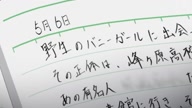 5月6日
野生のバニーガールに出会
その正体は、峰ヶ原高校
あの有名人